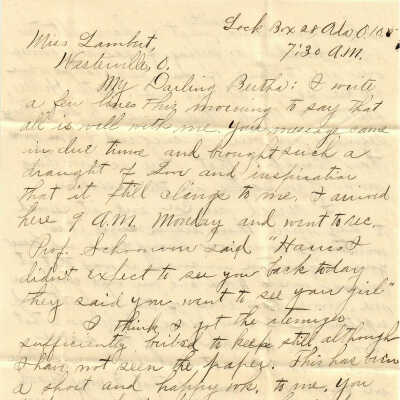 Lock Box 28 Ada O. 10.5
7:30 A.M.
Miss Lambert,
Westerville, O.
My Darling Bertha: I write
a few lines this morning to say that
all is well with me. Your message came
in due time and brought such a
draught of Love and inspiration
that it still clings to me. I arrived
here 9 A.M. Monday and went to rec.
Prof. said "Harris I
didn't expect to see you back today
they said you went to see your girl"
I think I got the
sufficiently bribed to keep still, although
I have not seen the paper. This has been
a short and happy wk. to me. You